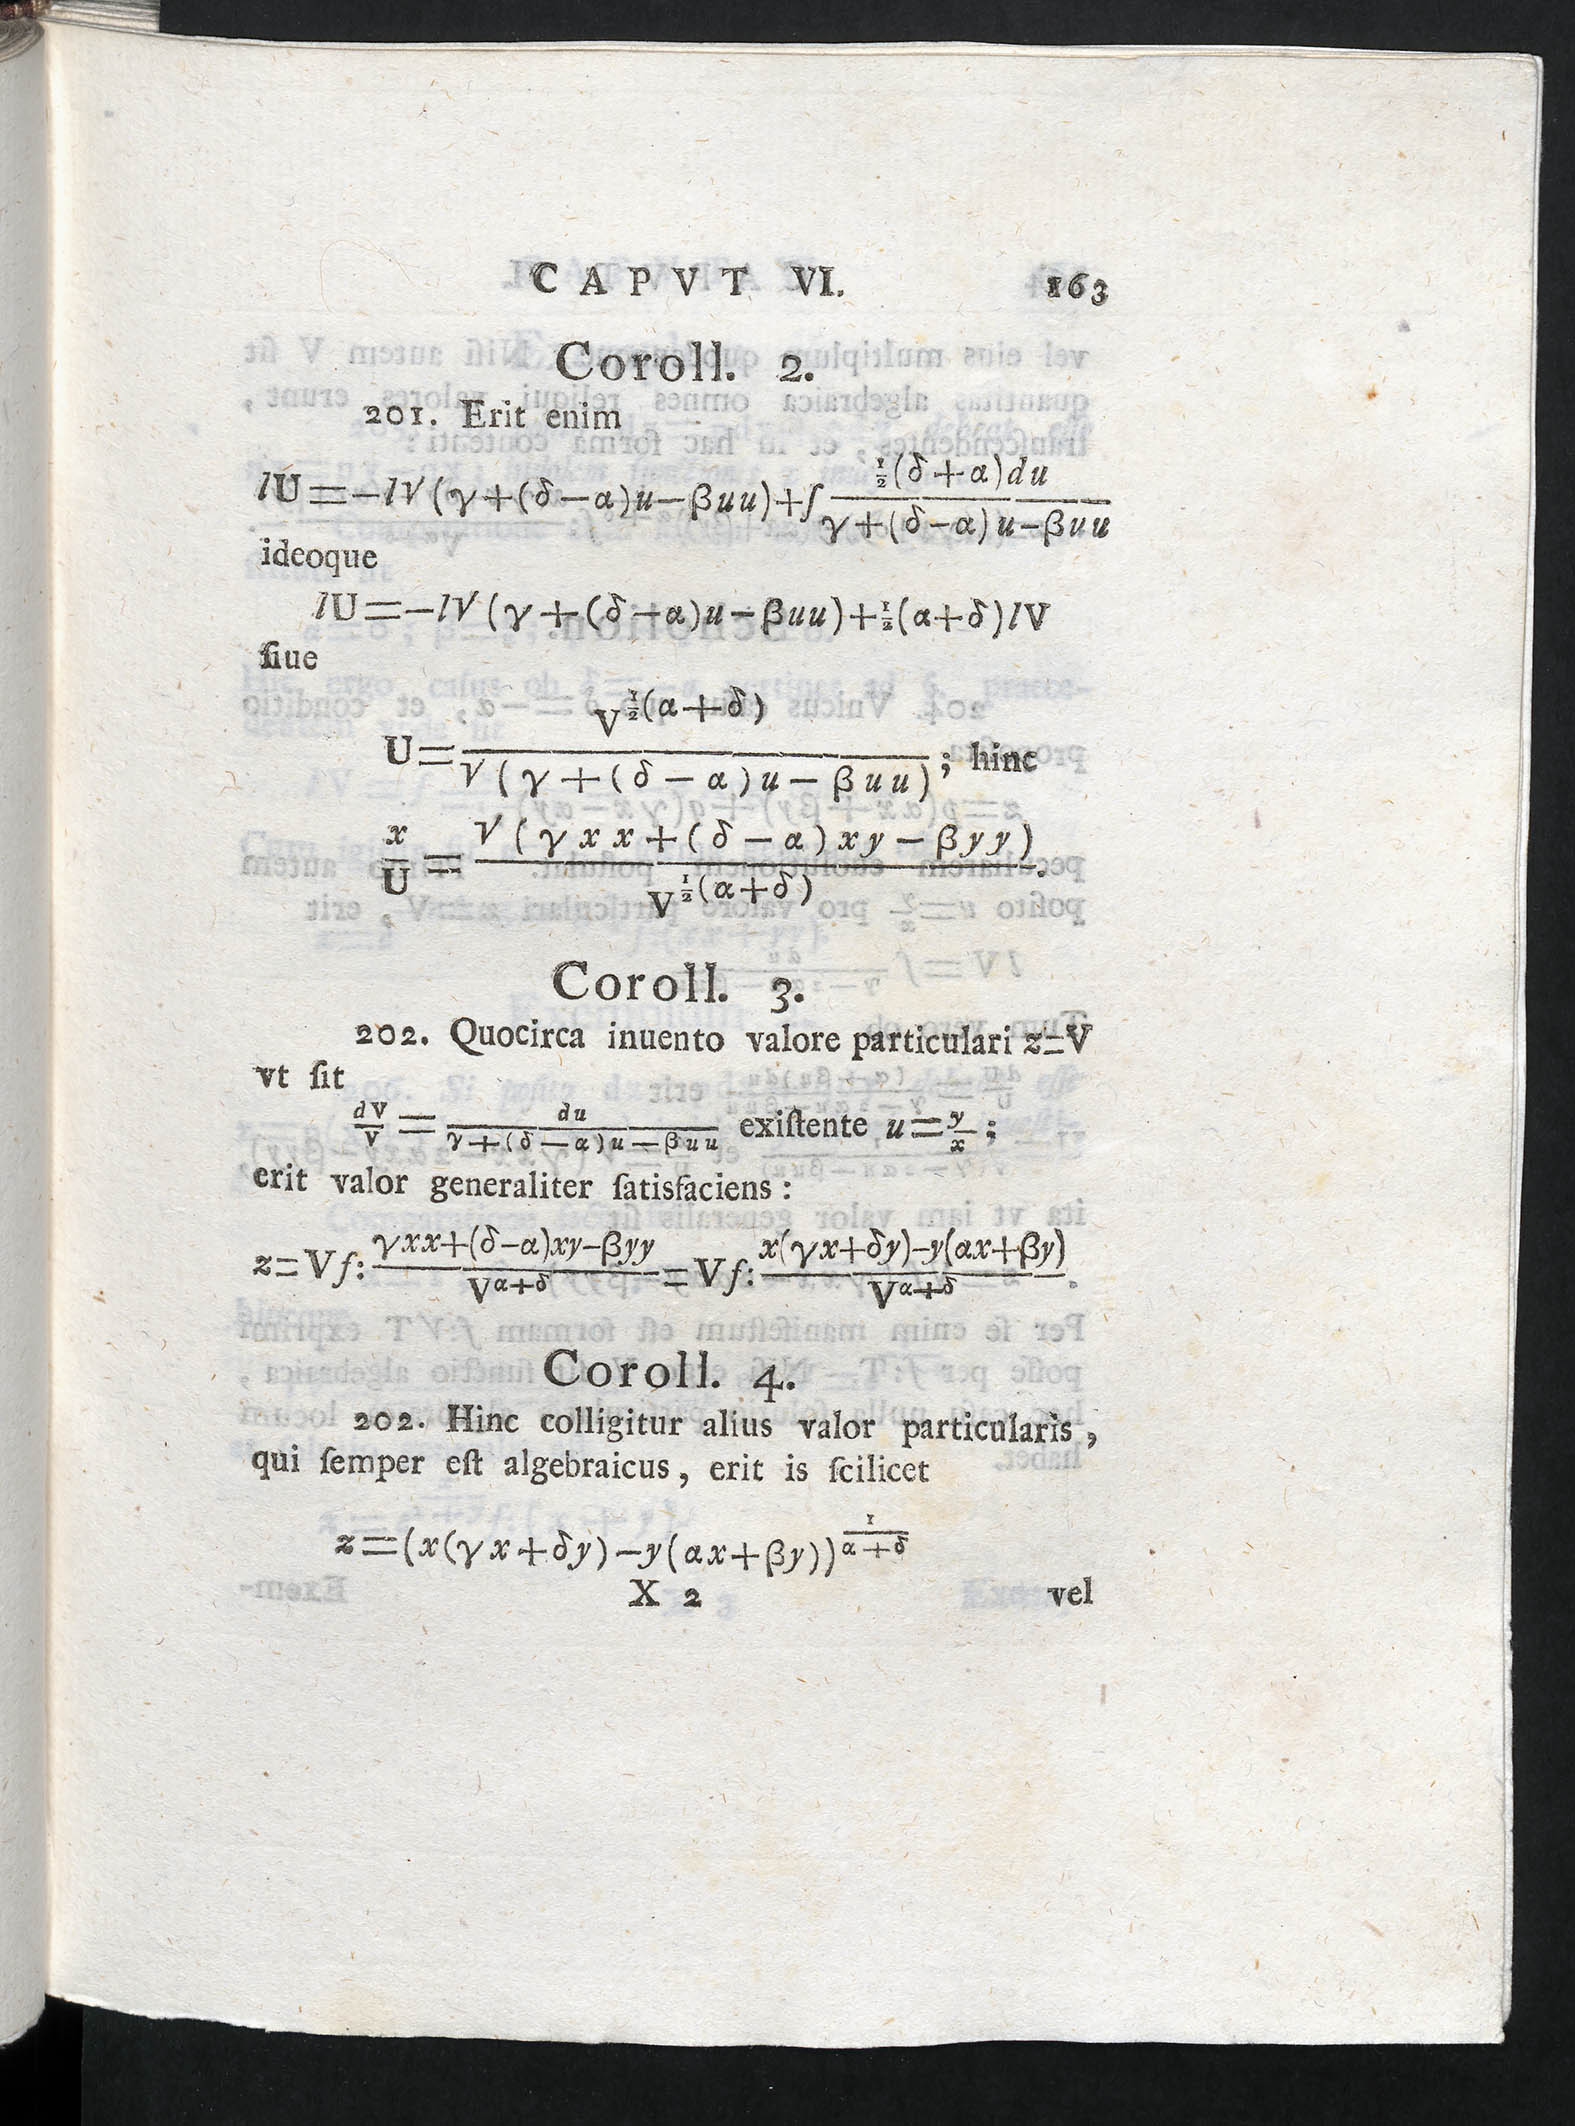 CAPVT VI. 163
Coroll. 2.
201. Erit enim
lU=-l√(γ+(δ-α)u-βuu)+∫ ½(δ+α)du / γ+(δ-α)u-βuu
ideoque
lU=-l√(γ+(δ-α)u-βuu)+½(α+δ)lV
ſiue
U= V^½(α+δ) / √(γ+(δ-α)u-βuu) ; hinc
x/U = √(γxx+(δ-α)xy-βyy) / V^½(α+δ) .
Coroll. 3.
202. Quocirca inuento valore particulari z=V
vt ſit
dV/V = du / γ+(δ-α)u-βuu exiſtente u=y/x ;
erit valor generaliter ſatisfaciens:
z=Vf: γxx+(δ-α)xy-βyy / V^α+δ =Vf: x(γx+δy)-y(αx+βy) / V^α+δ .
Coroll. 4.
202. Hinc colligitur alius valor particularis,
qui ſemper eſt algebraicus, erit is ſcilicet
z=(x(γx+δy)-y(αx+βy))^1/α+δ
X 2 vel